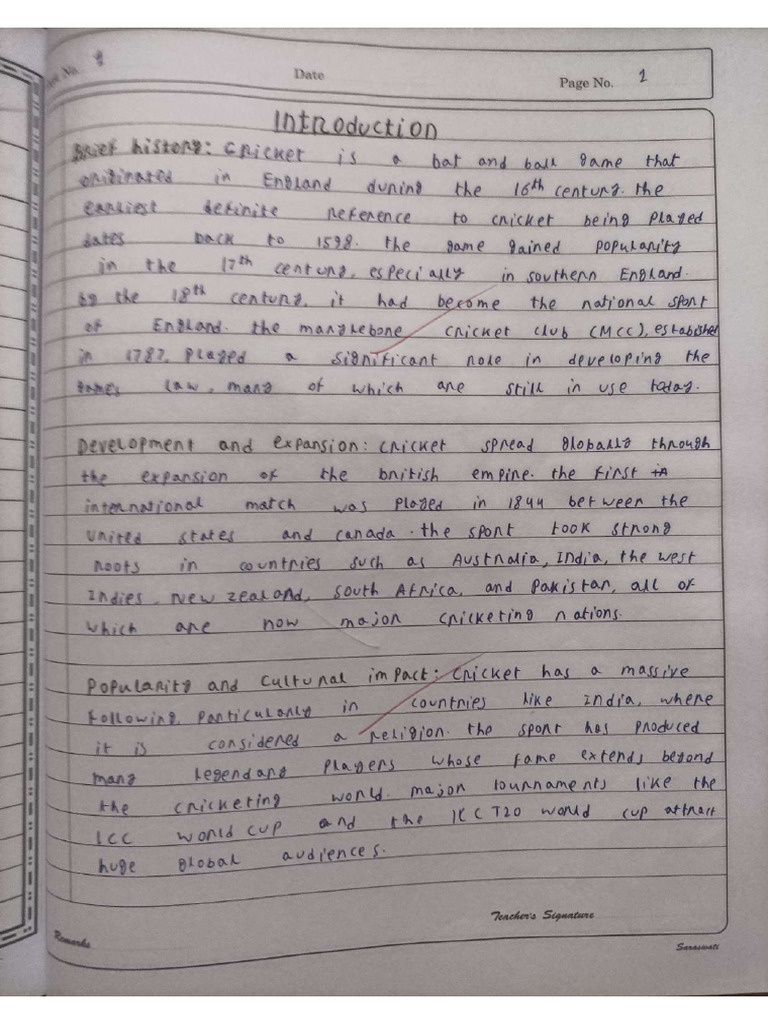 No. 1
Date
Page No. 1
Introduction
Brief history: cricket is a bat and ball game that
originated in England during the 16th century. the
earliest definite reference to cricket being played
dates back to 1598. the game gained popularity
in the 17th century, especially in southern England.
by the 18th century, it had become the national sport
of England. the marylebone cricket club (MCC), established
in 1787, played a significant role in developing the
games law, many of which are still in use today.
Development and expansion: cricket spread globally through
the expansion of the british empire. the first in
international match was played in 1844 between the
united states and canada. the sport took strong
roots in countries such as Australia, India, the west
Indies, New zealand, south Africa, and pakistan, all of
which are now major cricketing nations.
Popularity and cultural impact: cricket has a massive
following, particularly in countries like India, where
it is considered a religion. the sport has produced
many legendary players whose fame extends beyond
the cricketing world. major tournaments like the
ICC world cup and the ICC T20 world cup attract
huge global audiences.
Teacher's Signature
Remarks
Saraswati